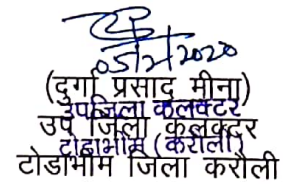 05/2/2020
(दुर्गा प्रसाद मीना)
उपजिला कलक्टर
उप जिला कलक्टर
टोडाभीम (करौली)
टोडाभीम जिला करौली